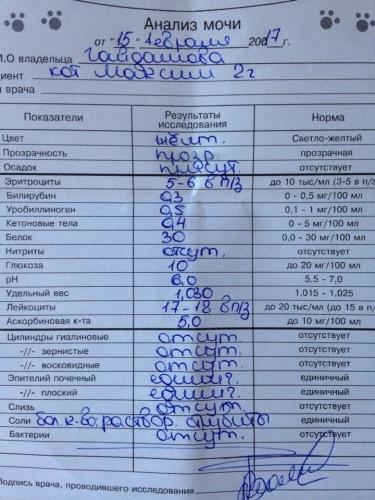 Анализ мочи
от "15" февраля 20017г.
И.О владельца Гайдашова
циент кот Максим 2г
я врача
Показатели Результаты исследования Норма
Цвет жёлт. Светло-желтый
Прозрачность прозр прозрачная
Осадок присут. отсутствует
Эритроциты 5-6 в п/з до 10 тыс/мл (3-5 в п/з
Билирубин 0,3 0 - 0,5 мг/100 мл
Уробиллиноген 0,5 0,1 - 1 мг/100 мл
Кетоновые тела 0,4 0 - 5 мг/100 мл
Белок 30 0,0 - 30 мг/100 мл
Нитриты отсут. отсутствует
Глюкоза 10 до 20 мг/100 мл
pH 6,0 5,5 - 7,0
Удельный вес 1,030 1,015 - 1,025
Лейкоциты 17-18 в п/з до 20 тыс/мл (до 15 в п/
Аскорбиновая к-та 5,0 до 10 мг/100 мл
Цилиндры гиалиновые отсут. отсутствует
-//- зернистые отсут. отсутствует
-//- восковидные отсут. отсутствует
Эпителий почечный единич. единичный
-//- плоский единич. единичный
Слизь отсут. отсутствует
Соли бол. к-во: раствор. струвиты отсутствует
Бактерии отсут. отсутствует
Подпись врача, проводившего исследования